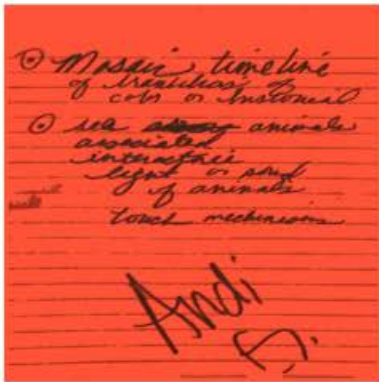 Mosaic timeline
of of
or historical
sea animals
associated
interactive
light or sound
of animals
touch mechanisms
Andi